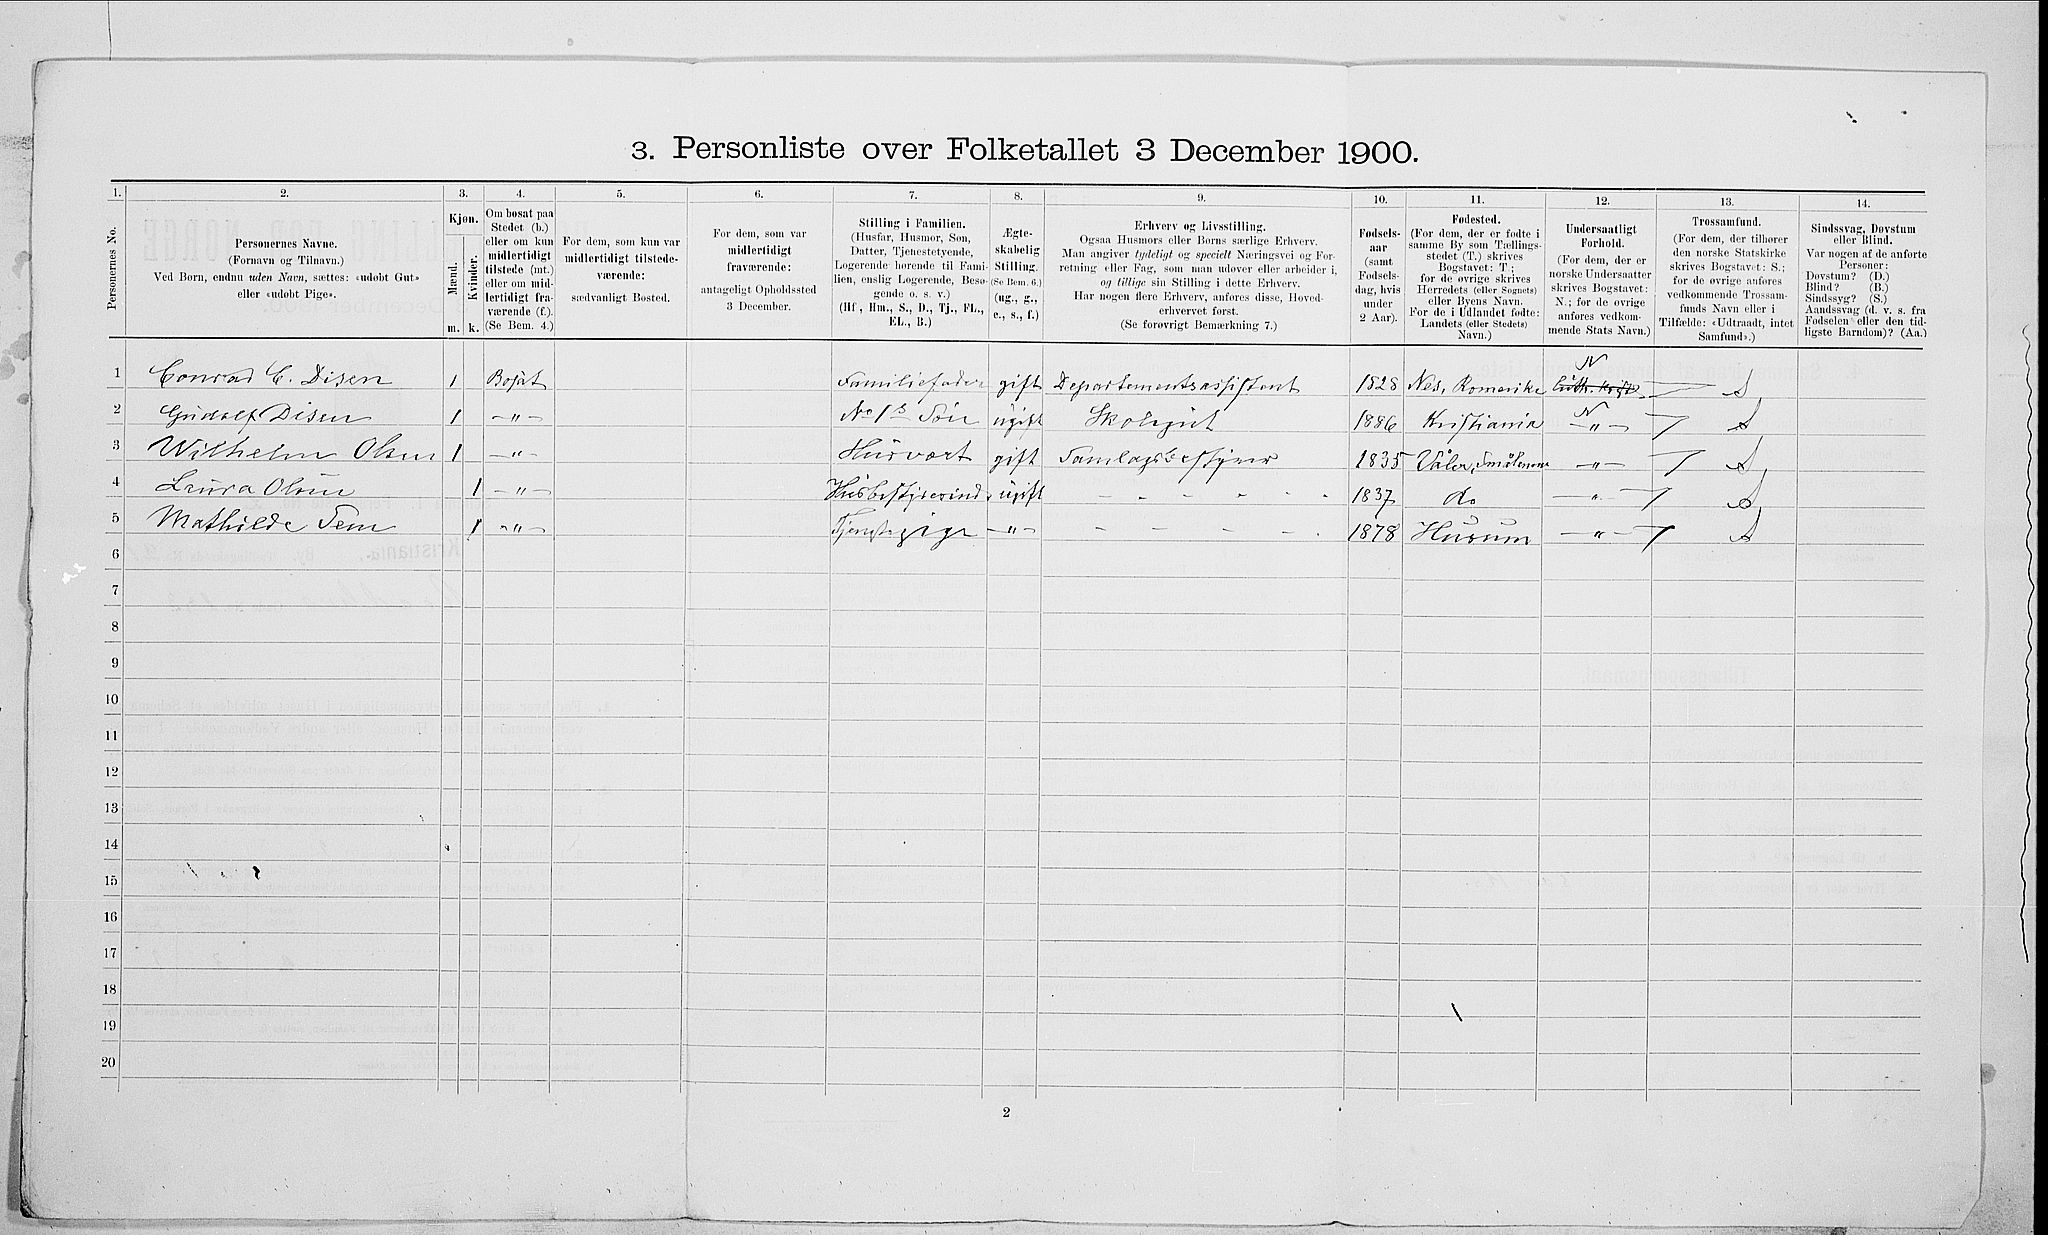 3. Personliste over Folketallet 3 December 1900.
1. 2. 3. 4. 5. 6. 7. 8. 9. 10. 11. 12. 13. 14.
Personernes No.
Personernes Navne.
(Fornavn og Tilnavn.)
Ved Børn, endnu uden Navn, sættes: «udøbt Gut»
eller «udøbt Pige».
Kjøn.
Mænd.
Kvinder.
m. k.
Om bosat paa
Stedet (b.)
eller om kun
midlertidigt
tilstede (mt.)
eller om mid-
lertidigt fra-
værende (f.).
(Se Bem. 4.)
For dem, som kun var
midlertidigt tilstede-
værende:
sædvanligt Bosted.
For dem, som var
midlertidigt
fraværende:
antageligt Opholdssted
3 December.
Stilling i Familien.
(Husfar, Husmor, Søn,
Datter, Tjenestetyende,
Logerende hørende til Fami-
lien, enslig Logerende, Besø-
gende o. s. v.)
(Hf., Hm., S., D., Tj., FL.,
EL., B.)
Ægte-
skabelig
Stilling.
(Se Bem. 6.)
(ug., g.,
e., s., f.)
Erhverv og Livsstilling.
Ogsaa Husmors eller Børns særlige Erhverv.
Man angiver tydeligt og specielt Næringsvei og For-
retning eller Fag, som man udøver eller arbeider i,
og tillige sin Stilling i dette Erhverv.
Har nogen flere Erhverv, anføres disse, Hoved-
erhvervet først.
(Se forøvrigt Bemærkning 7.)
Fødsels-
aar
(samt
Fødsels-
dag, hvis
under
2 Aar).
Fødested.
(For dem, der er fødte i
samme By som Tællings-
stedet (T.) skrives
Bogstavet: T.;
for de øvrige skrives
Herredets (eller Sognets)
eller Byens Navn.
For de i Udlandet fødte:
Landets (eller Stedets)
Navn.)
Undersaatligt
Forhold.
(For dem, der er
norske Undersaatter
skrives Bogstavet:
N.; for de øvrige
anføres vedkom-
mende Stats Navn.)
Trossamfund.
(For dem, der tilhører
den norske Statskirke
skrives Bogstavet: S.;
for de øvrige anføres
vedkommende Trossam-
funds Navn eller i
Tilfælde: «Udtraadt, intet
Samfund».)
Sindssvag, Døvstum
eller Blind.
Var nogen af de anførte
Personer:
Døvstum? (D.)
Blind? (B.)
Sindssyg? (S.)
Aandssvag (d. v. s. fra
Fødselen eller den tid-
ligste Barndom)? (Aa.)
1 Conrad C. Disen 1 Bosat Familiefader gift Departementsassistent 1828 Nes, Romerike N S
2 Gudolf Disen 1 —"— No 1s Søn ugift Skolegut 1886 Kristiania N —"— S
3 Wilhelm Olsen 1 —"— Husvært gift Samlagsbestyrer 1835 Våler, Smålenene —"— S
4 Laura Olsen 1 —"— Husbestyrerinde ugift - - - - - - 1837 do —"— S
5 Mathilde Tem 1 —"— Tjenestepige —"— - - - - - - 1878 Hurum —"— S
6
7
8
9
10
11
12
13
14
15
16
17
18
19
20
2